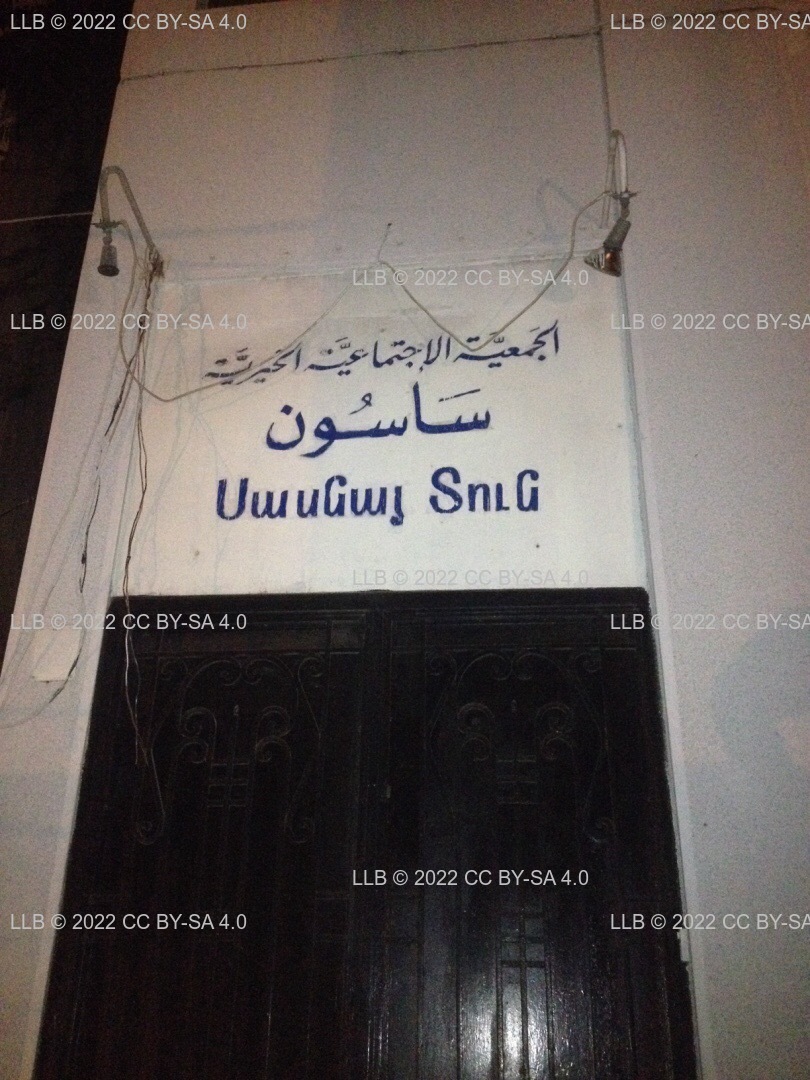 LLB © 2022 CC BY-SA 4.0
LLB © 2022 CC BY-SA
LLB © 2022 CC BY-SA 4.0
LLB © 2022 CC BY-SA 4.0
LLB © 2022 CC BY-SA
الجَمعيَّة الإجتماعيَّة الخيريَّة
سَاسُون
Սասնայ Տուն
LLB © 2022 CC BY-SA 4.0
LLB © 2022 CC BY-SA 4.0
LLB © 2022 CC BY-SA
LLB © 2022 CC BY-SA 4.0
LLB © 2022 CC BY-SA 4.0
LLB © 2022 CC BY-SA